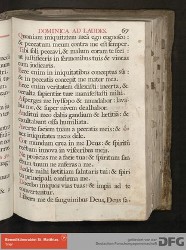 DOMINICA AD LAUDES. 67
Quoniam iniquitatem meam ego cognosco:
& peccatum meum contra me est semper.
Tibi soli peccavi, & malum coram te feci:
ut justificeris in sermonibus tuis & vincas
cum judicaris.
Ecce enim in iniquitatibus conceptus sũ:
& in peccatis concepit me mater mea.
Ecce enim veritatem dilexisti: incerta, &
occulta sapientiæ tuæ manifestasti mihi.
Asperges me hyssopo & mundabor: lava-
bis me, & super nivem dealbabor.
Auditui meo dabis gaudium & lætitiã: &
exultabunt ossa humiliata.
Averte faciem tuam a peccatis meis: &
nes iniquitates meas dele.
Cor mundum crea in me Deus: & spiritũ
rectum innova in visceribus meis.
Ne projicias me a facie tua: & spiritum san
ctum tuum ne auferas a me.
Redde mihi lætitiam salutaris tui: & spiri
tu principali confirma me.
Docebo iniquos vias tuas: & impii ad te
convertentur.
Libera me de sanguinibus Deus, Deus sa-
Benediktinerabtei St. Matthias
gefördert von der
Deutschen Forschungsgemeinschaft
DFG